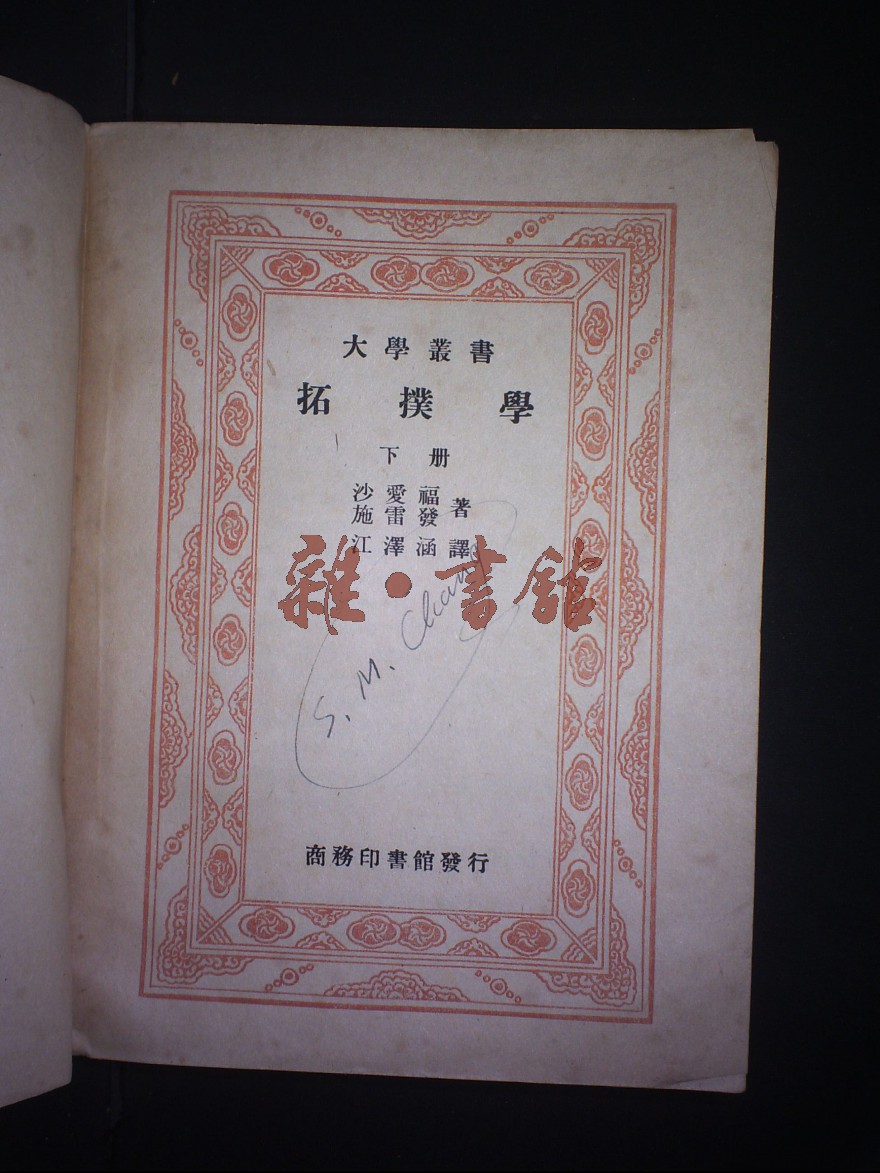 大學叢書
拓撲學
下册
沙愛福
施雷發 著
江澤涵 譯
雜·書館
S. M. Chang
商務印書館發行